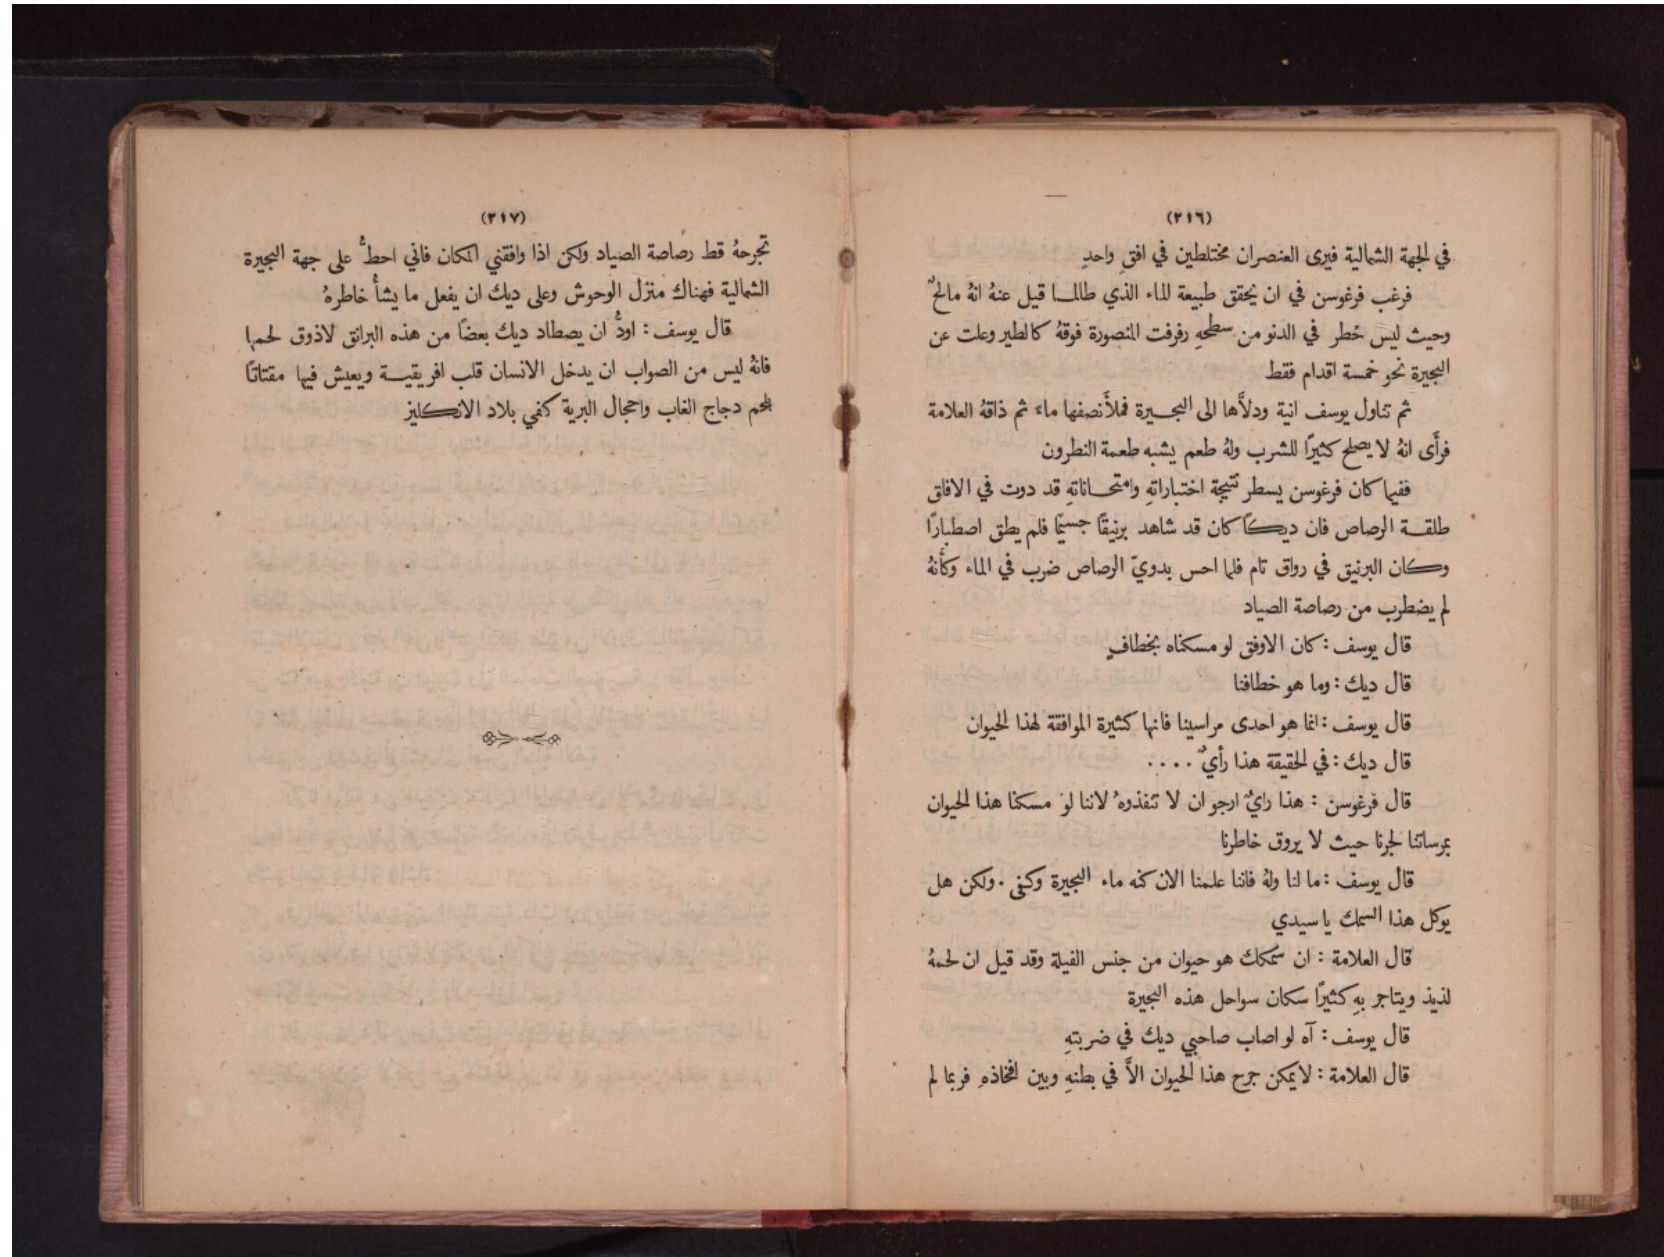 (٢١٦)
في الجهة الشمالية فيرى العنصران مختلطين في افقٍ واحدٍ
فرغب فرغوسن في ان يحقق طبيعة الماء الذي طالما قيل عنهُ انهُ مالحٌ
وحيث ليس خطر في الدنو من سطحهِ رفرفت المنصورة فوقهُ كالطير وعلت عن
البحيرة نحو خمسة اقدام فقط
ثم تناول يوسف انية ودلاَّها الى البحيرة فملأَ نصفها ماء ثم ذاقهُ العلامة
فرأَى انهُ لا يصلح كثيرًا للشرب ولهُ طعم يشبه طعمة النطرون
ففيما كان فرغوسن يسطر نتيجة اختباراتهِ وامتحاناتهِ قد دوت في الافاق
طلقة الرصاص فان ديكًا كان قد شاهد برنيقًا جسيمًا فلم يطق اصطبارًا
وكان البرنيق في رواق تام فلما احس بدويّ الرصاص ضرب في الماء وكأَنهُ
لم يضطرب من رصاصة الصياد
قال يوسف : كان الاوفق لو مسكناه بخطافٍ
قال ديك : وما هو خطافنا
قال يوسف : انما هو احدى مراسينا فانها كثيرة الموافقة لهذا الحيوان
قال ديك : في الحقيقة هذا رأيٌ ....
قال فرغوسن : هذا رايٌ ارجو ان لا تنفذوهُ لاننا لو مسكنا هذا الحيوان
بمرساتنا لجرنا حيث لا يروق خاطرنا
قال يوسف : ما لنا ولهُ فاننا علمنا الان كنه ماء البحيرة وكفى . ولكن هل
يوكل هذا السمك يا سيدي
قال العلامة : ان سمكك هو حيوان من جنس الفيلة وقد قيل ان لحمهُ
لذيذ ويتاجر بهِ كثيرًا سكان سواحل هذه البحيرة
قال يوسف : آه لو اصاب صاحبي ديك في ضربتهِ
قال العلامة : لا يمكن جرح هذا الحيوان الاَّ في بطنهِ وبين افخاذهِ فربما لم
(٢١٧)
تجرحهُ قط رصاصة الصياد ولكن اذا وافقني المكان فاني احطُّ على جهة البحيرة
الشمالية فهناك منزل الوحوش وعلى ديك ان يفعل ما يشأُ خاطرهُ
قال يوسف : اودُّ ان يصطاد ديك بعضًا من هذه البرانق لاذوق لحمها
فانهُ ليس من الصواب ان يدخل الانسان قلب افريقية ويعيش فيها مقتاتًا
بلحم دجاج الغاب واحجال البرية كفي بلاد الانكليز